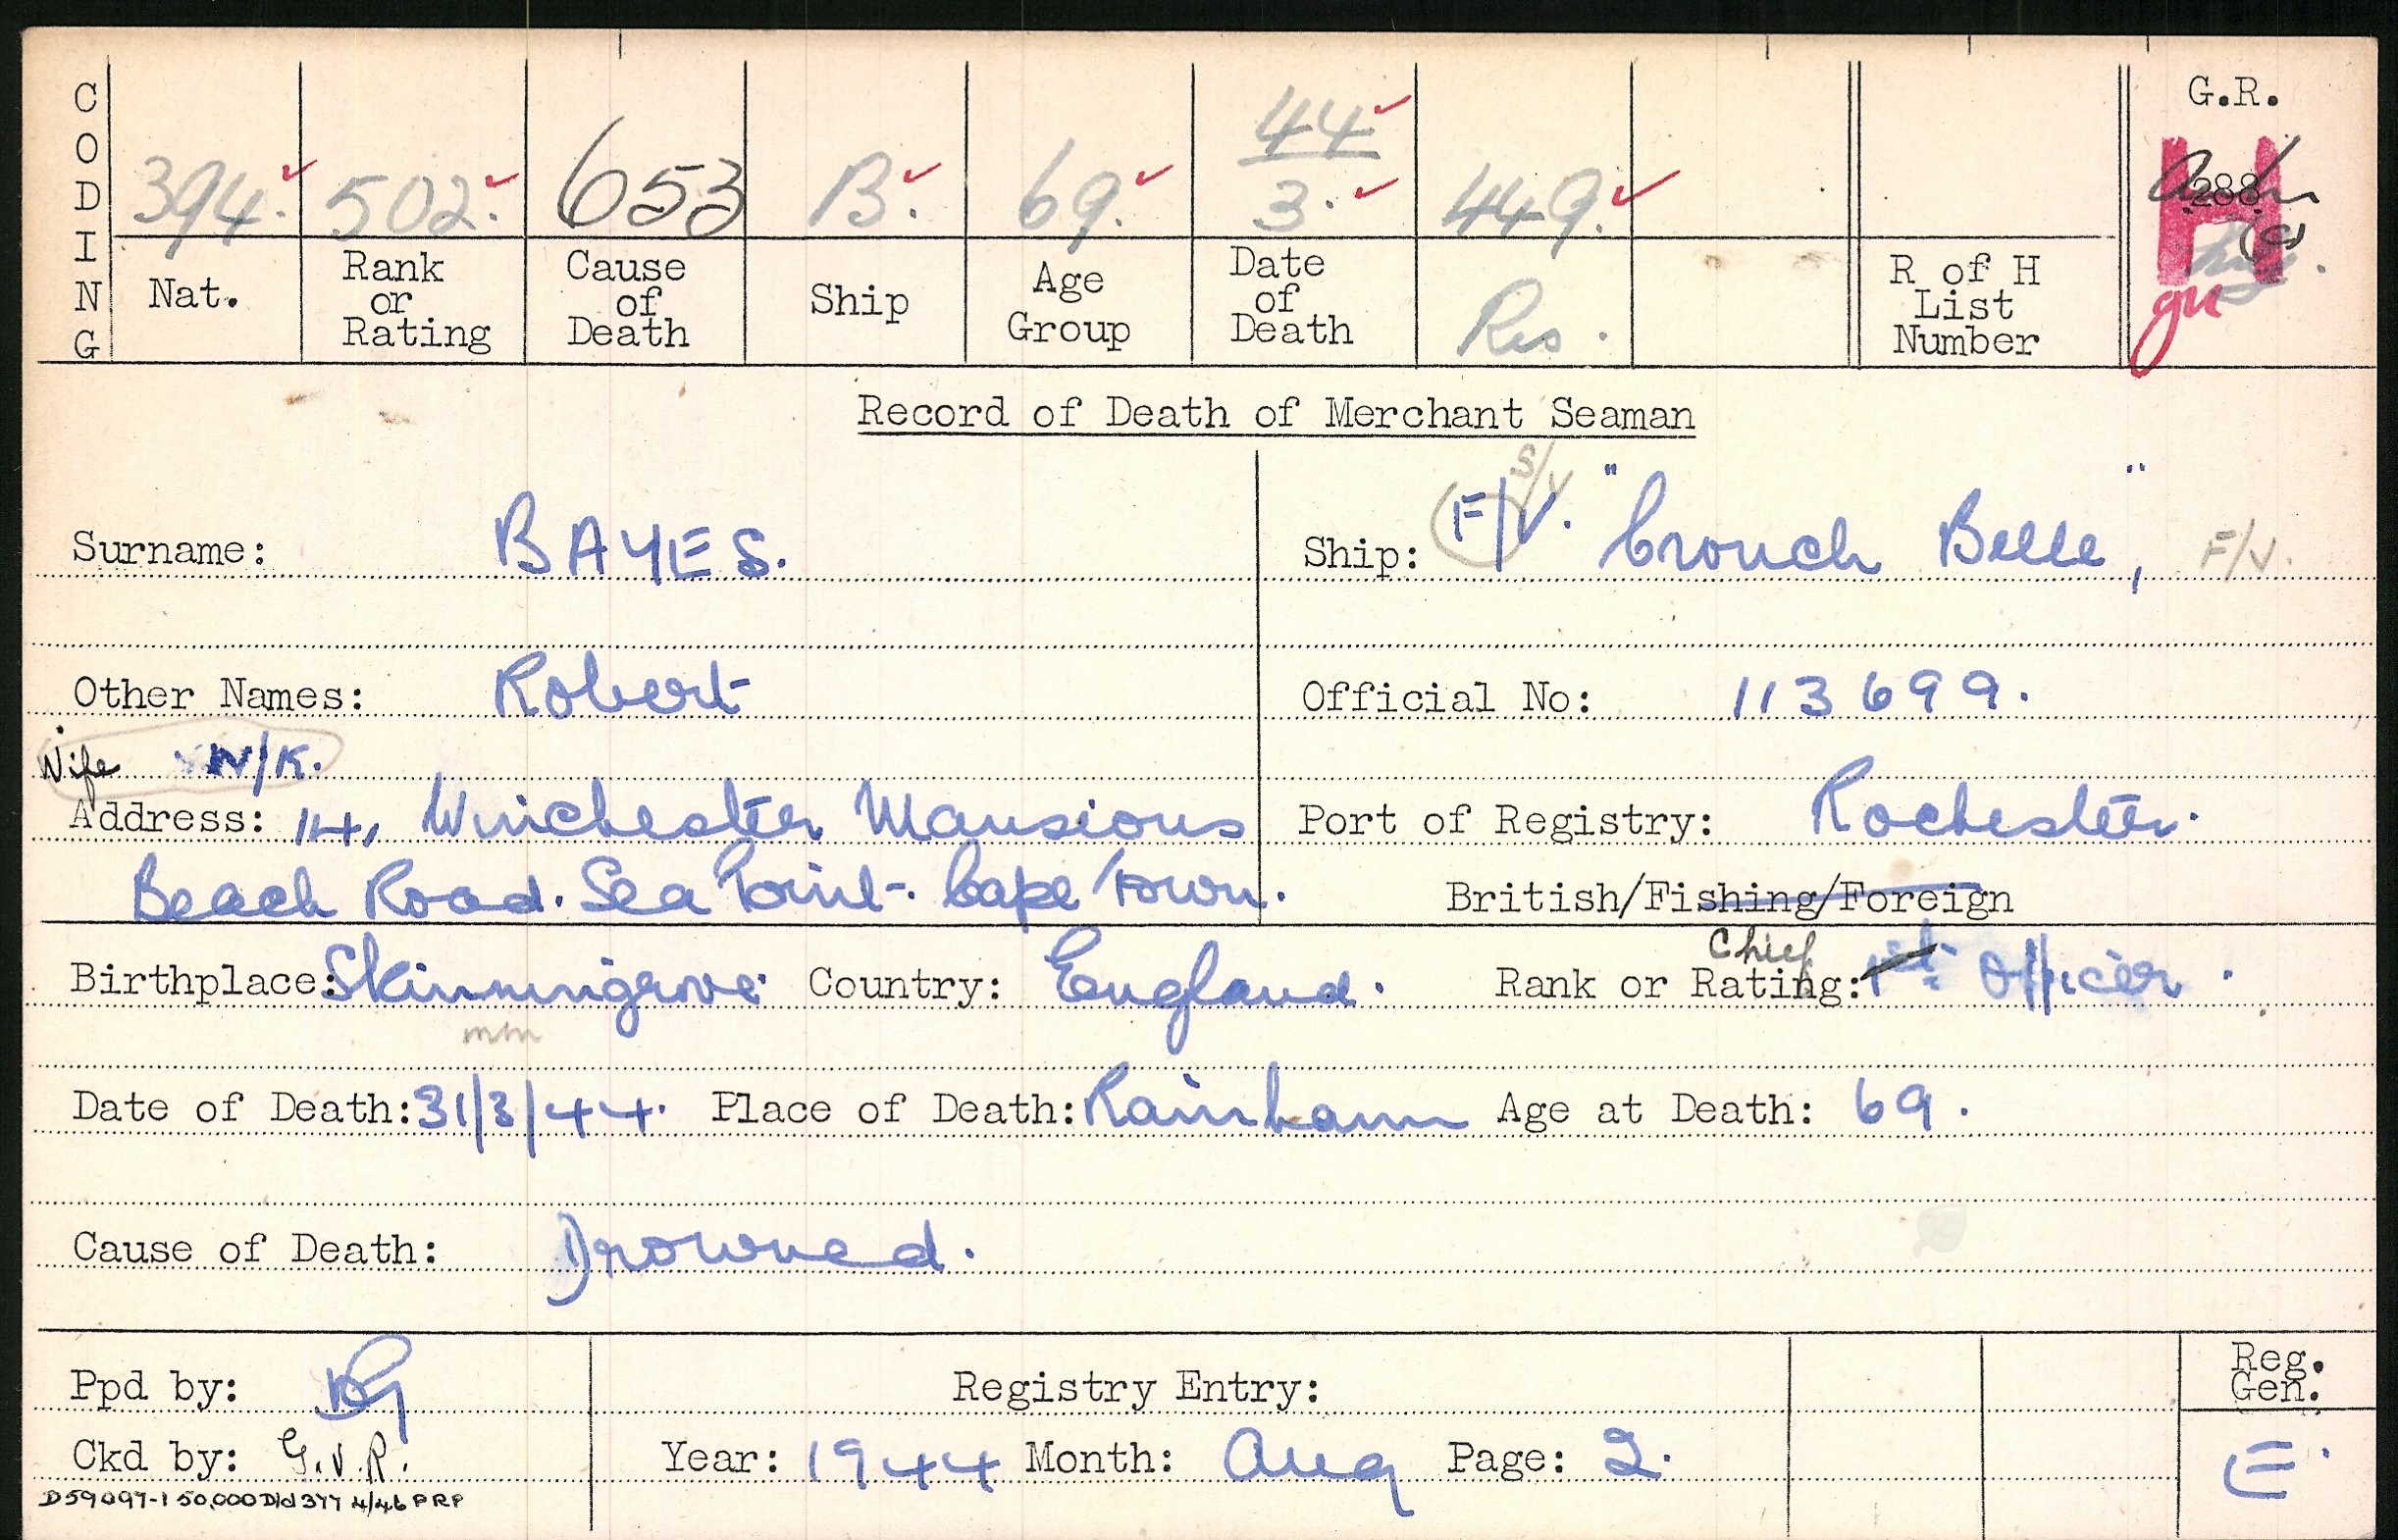 CODING
394. 502. 653 B. 69. 44/3. 449. G.R.
288
(C)
Nat. Rank or Rating Cause of Death Ship Age Group Date of Death Res. R of H List Number
H
Record of Death of Merchant Seaman
S/V
Surname: BAYES. Ship: F/V. "Crouch Belle", F/V.
Other Names: Robert Official No: 113699.
Wife N/K.
Address: 14, Winchester Mansions Port of Registry: Rochester.
Beach Road. Sea Point. Cape Town. British/Fishing/Foreign
Chief
Birthplace: Skinningrove Country: England. Rank or Rating: 1st Officer.
mm
Date of Death: 31/3/44. Place of Death: Rainham Age at Death: 69.
Cause of Death: Drowned.
Ppd by: Registry Entry: Reg. Gen.
Ckd by: G.V.R. Year: 1944 Month: Aug Page: 2. E.
D59097-1 50,000 D/d 377 4/46 P R P